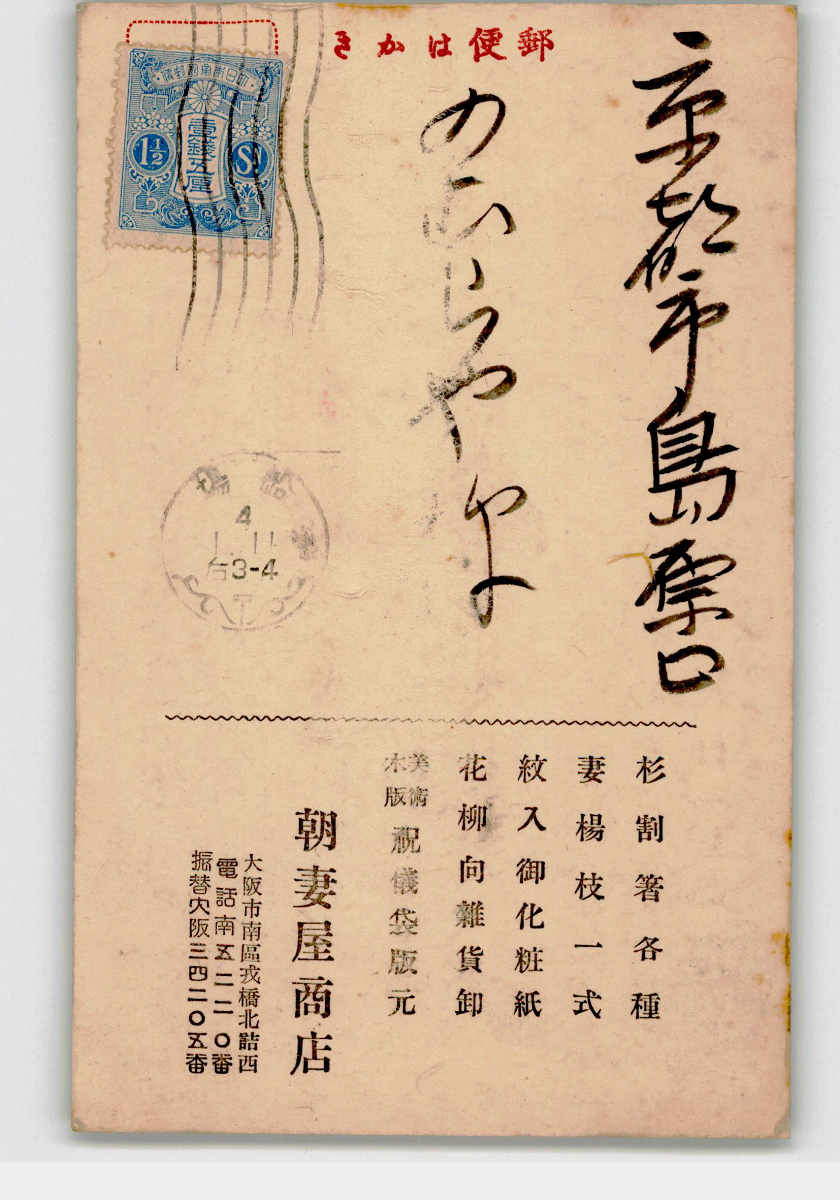 郵便はかき
京都市島原口
のむらや
杉割箸各種
妻楊枝一式
紋入御化粧紙
花柳向雜貨卸
美術木版祝儀袋版元
朝妻屋商店
大阪市南區戎橋北詰西
電話南五二二〇番
振替大阪三四二〇五番
壹錢五厘
1½ Sn
4
1.11
3-4